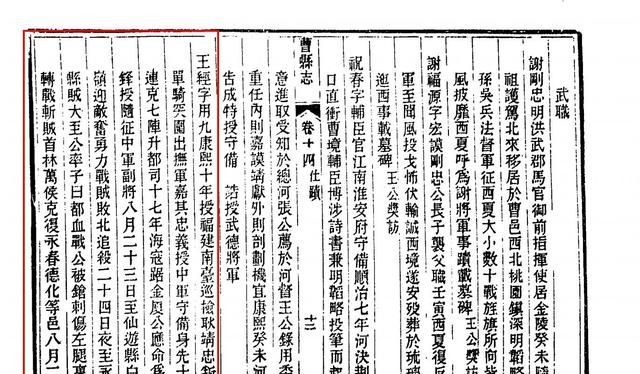 武職
謝剛忠明洪武郡馬官御前指揮使居金陵癸未隨
祖護駕北來移居於曹邑西北桃園鎮深明韜略
孫吳兵法督軍征西夏大小數十戰旌旗所向皆
風披靡西夏呼爲謝將軍事蹟載墓碑 王公奬訪
謝福源字宏謨剛忠公長子襲父職壬寅西夏復
軍至聞風投戈怖伏輸誠西境遂安殁葬於琉
逝西事載墓碑 王公奬訪
祝春字輔臣官江南淮安府守備順治七年河決荆
口直衝曹境輔臣博涉詩書兼明韜略投筆而
意進取受知於總河張公薦於河督王公錄用委
重任內則嘉謨靖獻外則剖劃機宜康熙癸未河
告成特授守備 誥授武德將軍
曹縣志 卷十四 仕蹟 十二
王經字用九康熙十年授福建南臺巡檢耿靖忠
單騎突圍出撫軍嘉其忠義授中軍守備身先十
連克七陣升都司十七年海寇踞金厦公應命
鋒授隨征中軍副將八月二十三日至仙遊縣白
嶺迎敵奮勇力戰賊敗北追殺二十四日夜至永
縣賊大王公率子日都血戰公被鎗刺傷左腿裏
轉戰斬賊首林萬侯克復永春德化等邑八月二